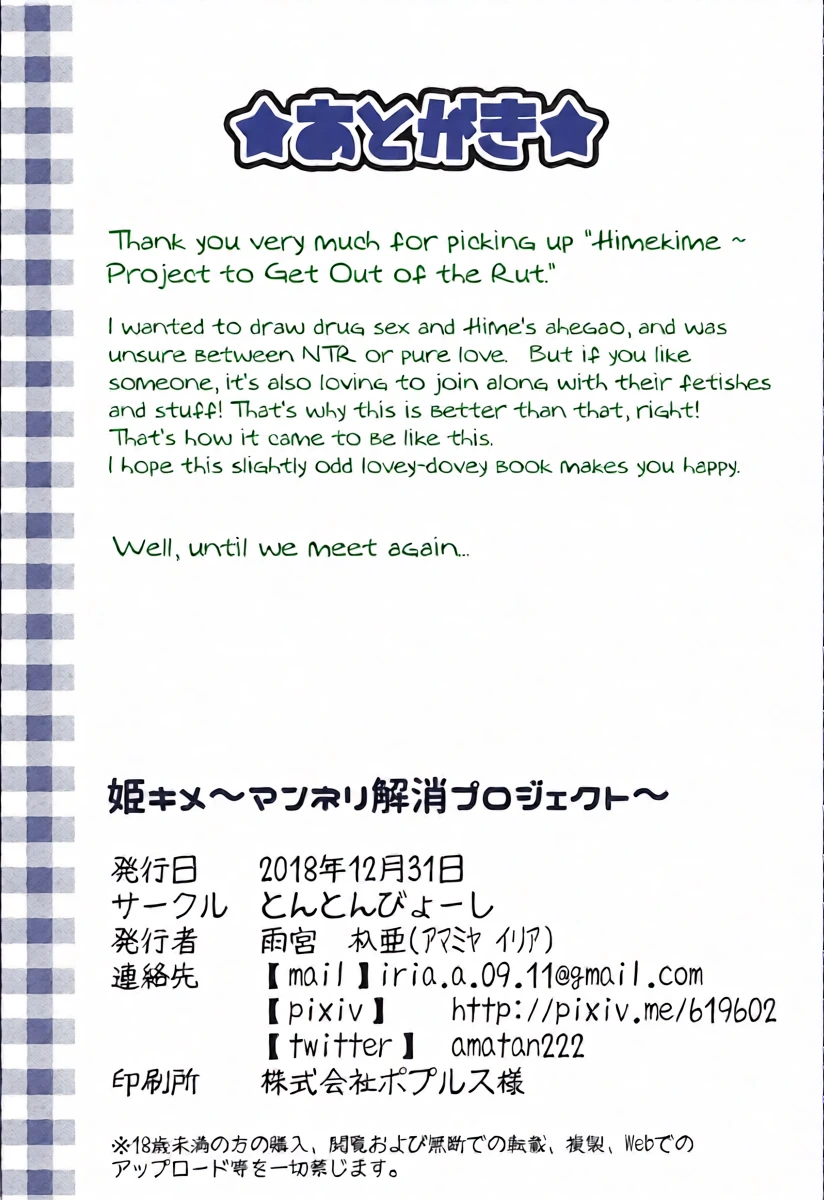 ★あとがき★
Thank you very much for picking up "Himekime ~
Project to Get Out of the Rut."
I wanted to draw drug sex and Hime's ahegao, and was
unsure between NTR or pure love. But if you like
someone, it's also loving to join along with their fetishes
and stuff! That's why this is better than that, right!
That's how it came to be like this.
I hope this slightly odd lovey-dovey book makes you happy.
Well, until we meet again...
姫キメ～マンネリ解消プロジェクト～
発行日 2018年12月31日
サークル とんとんびょーし
発行者 雨宮 杁亜(アマミヤ イリア)
連絡先 【mail】iria.a.09.11@gmail.com
【pixiv】 http://pixiv.me/619602
【twitter】 amatan222
印刷所 株式会社ポプルス様
※18歳未満の方の購入、閲覧および無断での転載、複製、Webでの
アップロード等を一切禁じます。